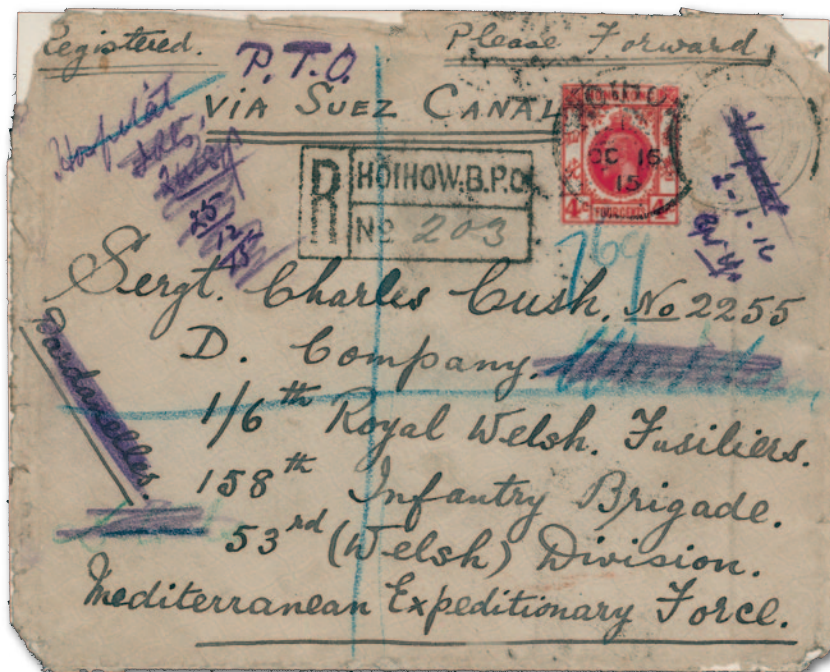 Registered.
Please Forward
P.T.O.
VIA SUEZ CANAL
Hospital
25/12/15
R
HOIHOW.B.P.O.
No 203
HOIHOW
OC 16
15
4
HONG KONG
2-1-16
769
Sergt. Charles Cush. No 2255
D. Company.
1/6th Royal Welsh. Fusiliers.
158th Infantry Brigade.
53rd (Welsh) Division.
Mediterranean Expeditionary Force.
Dardanelles.